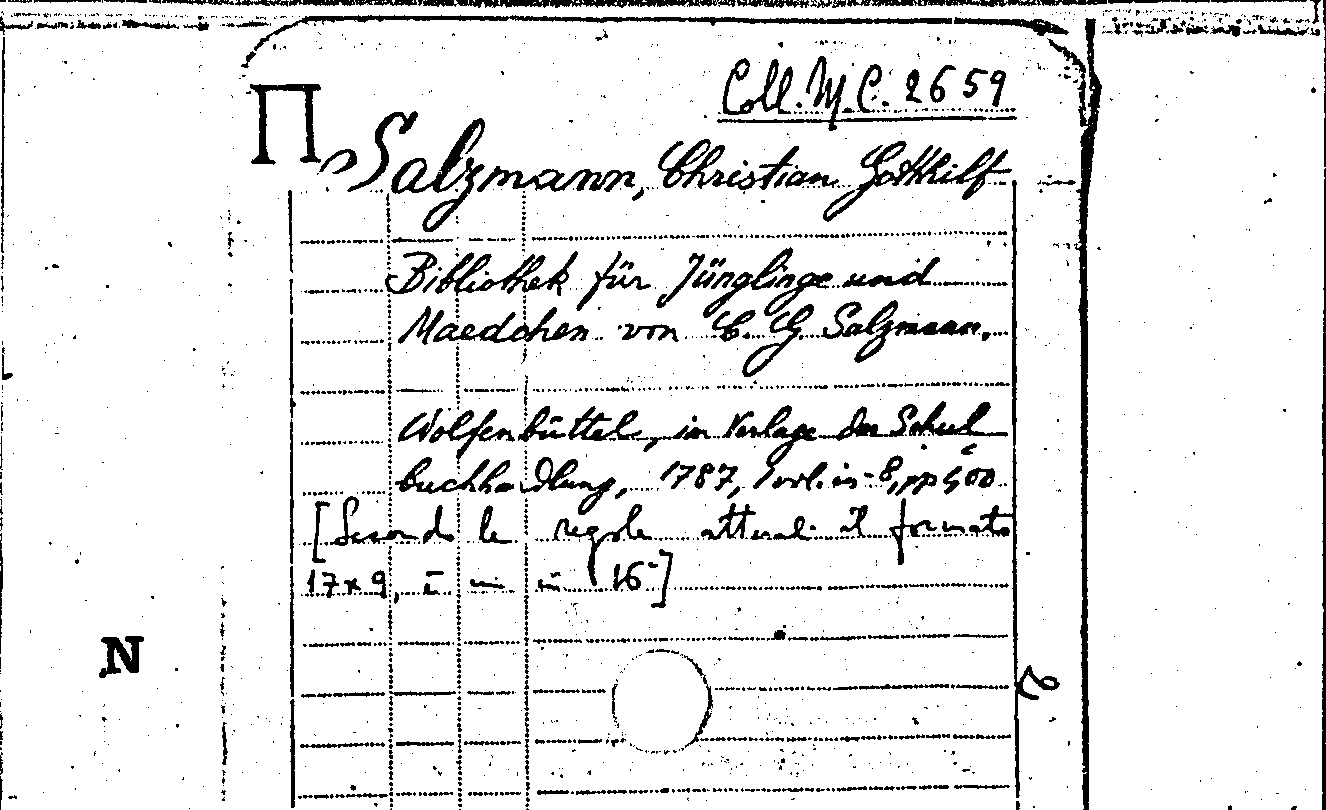 Coll. M. C. 2659
Π
Salzmann, Christian Gotthilf
Bibliothek für Jünglinge und
Maedchen von C. G. Salzmann.
Wolfenbüttel, im Verlage der Schul
buchhandlung, 1787, 1 vol. in-8, pp 400
[Secondo le regole attuali il formato
17x9, è un in 16°]
N
2